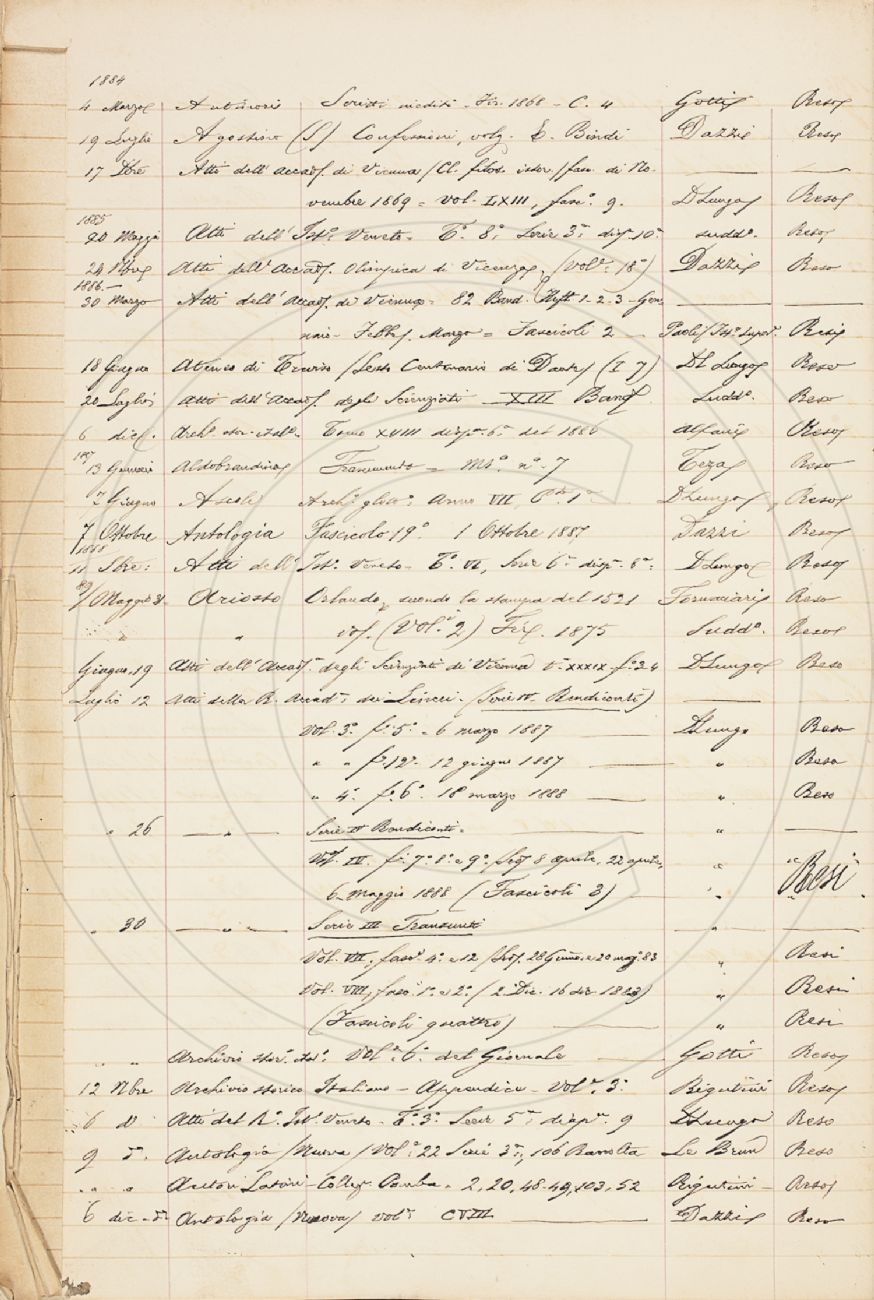 1884
4 Marzo Scritti inediti - Fir. 1868 - C. 4 Gotti Reso
19 Luglio Agostino (S) Confessioni, volg. E. Bindi Dazzi Reso
17 Atti dell' accad. di Vienna / Cl. filos. istor. / fasc. di No-
vembre 1869 = vol. LXIII, fasc. 9. DLungo Reso
1885
20 Maggio Atti dell' Ist. Veneto - T. 8, Serie 3, disp. 10 sudd. Reso
24 Atti dell' Accad. Olimpica di Vicenza, (vol. 18) Dazzi Reso
1886 -
30 Marzo Atti dell' Accad. di Vienna = 82 Band. Heft 1-2-3 - Gen-
naio - Febb. Marzo = Fascicoli 2 Paoli Resi
18 Giugno Ateneo di Treviso / Sesto Centenario di Dante / (I 7) Del Lungo Reso
20 Luglio Atti dell' Accad. degli Scienziati XIII Band. Sudd. Reso
6 dic. Arch. stor. ital. Tomo XVIII disp. 6 del 1886 Alfani Reso
187
13 Gennaio Aldobrandino Ms. n. 7 Teza Reso
7 Giugno Ascoli Arch. glott. Anno VII, 1 DLungo, Reso
7 Ottobre Antologia Fascicolo 19 1 Ottobre 1887 Dazzi Reso
1888
11 Atti dell' Ist. Veneto - T. VI, Serie 6 disp. 6 DLungo Reso
89/
Maggio Ariosto Orlando, secondo la stampa del 1521 Fornaciari Reso
" " (Vol. 2) 1875 Sudd. Reso
Giugno, 19 Atti dell' Accad. degli Scienziati di Vienna t. XXXIX - f. 24 DLungo Reso
Luglio 12 Atti della R. Accad. dei Lincei - (Serie IV. Rendiconti)
Vol. 3. f. 5. - 6 marzo 1887 DLungo Reso
" " f. 12. 12 giugno 1887 " Reso
" 4. f. 6. 18 marzo 1888 " Reso
" 26 " Serie IV Rendiconti. "
Vol. IV. f. 7. 8. e 9. 8 aprile, 22 aprile, " " Resi "
6 Maggio 1888 (Fascicoli 3) " "
" 30 " " Serie III Transunti "
Vol. VII, fasc. 4. e 12 28 e 20 mag. 83 " Resi
Vol. VIII, fasc. 1. e 2. (2 Dic. 16 dic 1883) " Resi
(Fascicoli quattro) " Resi
" " Archivio stor. ital. Vol. 6. del Giornale Gotti Reso
12 Nbre Archivio storico Italiano - Appendice - Vol. 3. Rigutini Reso
6 d Atti del R. Ist. Veneto - T. 3. Serie 5, disp. 9 DLungo Reso
9 Antologia / Nuova / Vol. 22 Serie 3, 106 Raccolta Le Brun Reso
" " " Autori Latini - Collez. Pomba. 2, 20, 48-49, 103, 52 Rigutini - Reso
6 dic Antologia / Nuova / vol. CVIII Dazzi Reso